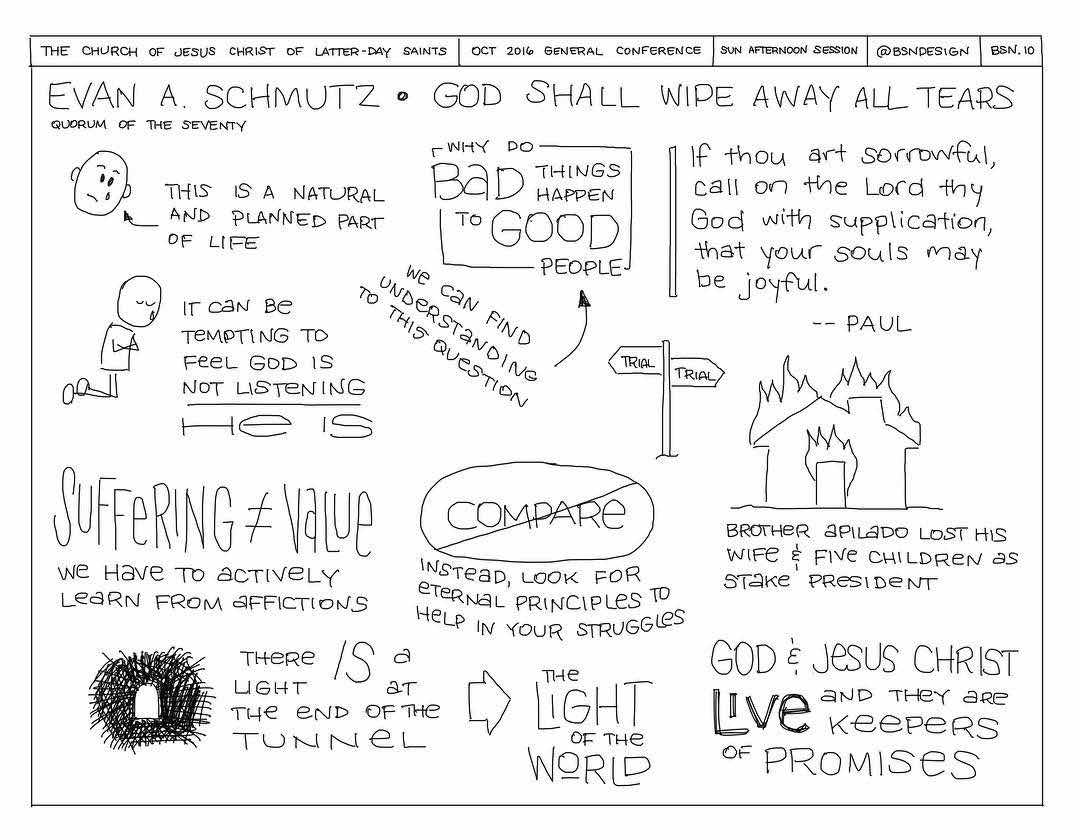 THE CHURCH OF JESUS CHRIST OF LATTER-DAY SAINTS
OCT 2016 GENERAL CONFERENCE
SUN AFTERNOON SESSION
@BSNDESIGN
BSN.10
EVAN A. SCHMUTZ • GOD SHALL WIPE AWAY ALL TEARS
QUORUM OF THE SEVENTY
THIS IS A NATURAL
AND PLANNED PART
OF LIFE
WHY DO
BaD THINGS
HAPPEN
TO GOOD
PEOPLE
If thou art sorrowful,
call on the Lord thy
God with supplication,
that your souls may
be joyful.
-- PAUL
IT CaN Be
TeMPTING TO
FeeL GOD IS
NOT LISTeNING
He IS
We CaN FIND
UNDeRSTaNDING
TO THIS QUeSTION
TRIAL
TRIAL
SUFFeRING ≠ VaLUe
We HaVe TO aCTIVeLY
LeaRN FROM aFFICTIONS
COMPaRe
INSTeaD, LOOK FOR
eTeRNaL PRINCIPLeS TO
HeLP IN YOUR STRUGGLeS
BROTHeR aPILaDO LOST HIS
WIFe & FIVe CHILDReN aS
STaKe PReSIDeNT
THeRe IS a
LIGHT aT
THe eND OF THe
TUNNeL
THe
LIGHT
OF THe
WORLD
GOD & JeSUS CHRIST
LIVe aND THeY aRe
KeePeRS
OF PROMISeS